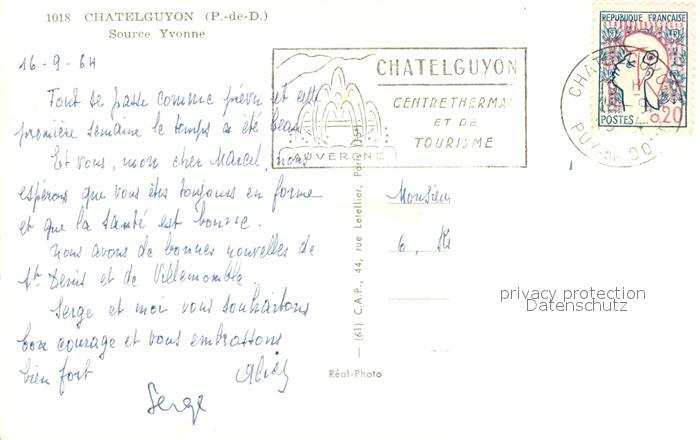 1018 CHATELGUYON (P.-de-D.)
Source Yvonne
16-9-64
Tout se passe comme prévu et cette
première semaine le temps a été beau
Et vous, mon cher Marcel, nous
espérons que vous êtes toujours en forme
et que la santé est bonne.
Nous avons de bonnes nouvelles de
St Denis et de Villemomble
Serge et moi vous souhaitons
bon courage et vous embrassons
bien fort
Serge
CHATELGUYON
CENTRE THERMAL
ET DE
TOURISME
AUVERGNE
REPUBLIQUE FRANÇAISE
POSTES 0,20
CHATELGUYON
PUY-DE-DOME
(61) C.A.P., 44, rue Letellier, Paris
Réal-Photo
Monsieur
6,
privacy protection
Datenschutz